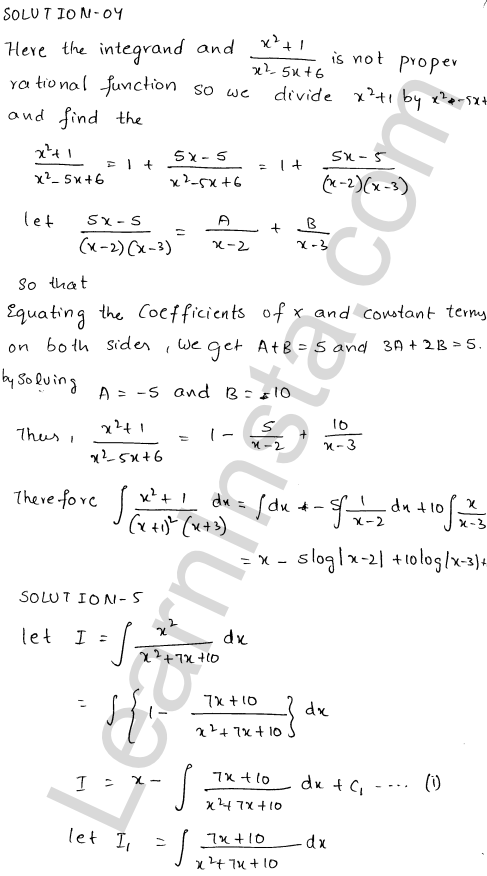 SOLUTION-04
Here the integrand and (x²+1)/(x²-5x+6) is not proper
rational function so we divide x²+1 by x²-5x+
and find the
(x²+1)/(x²-5x+6) = 1 + (5x-5)/(x²-5x+6) = 1 + (5x-5)/((x-2)(x-3))
let (5x-5)/((x-2)(x-3)) = A/(x-2) + B/(x-3)
so that
Equating the coefficients of x and constant terms
on both sides, we get A+B = 5 and 3A+2B = 5.
by solving A = -5 and B = 10
Thus, (x²+1)/(x²-5x+6) = 1 - 5/(x-2) + 10/(x-3)
Therefore ∫ (x²+1)/((x+1)²(x+3)) dx = ∫dx - 5∫ 1/(x-2) dx + 10∫ x/(x-3)
= x - 5log|x-2| + 10log|x-3|+
SOLUTION-5
let I = ∫ x²/(x²+7x+10) dx
= ∫ {1 - (7x+10)/(x²+7x+10)} dx
I = x - ∫ (7x+10)/(x²+7x+10) dx + C₁ ----- (i)
let I₁ = ∫ (7x+10)/(x²+7x+10) dx
Learninsta.com